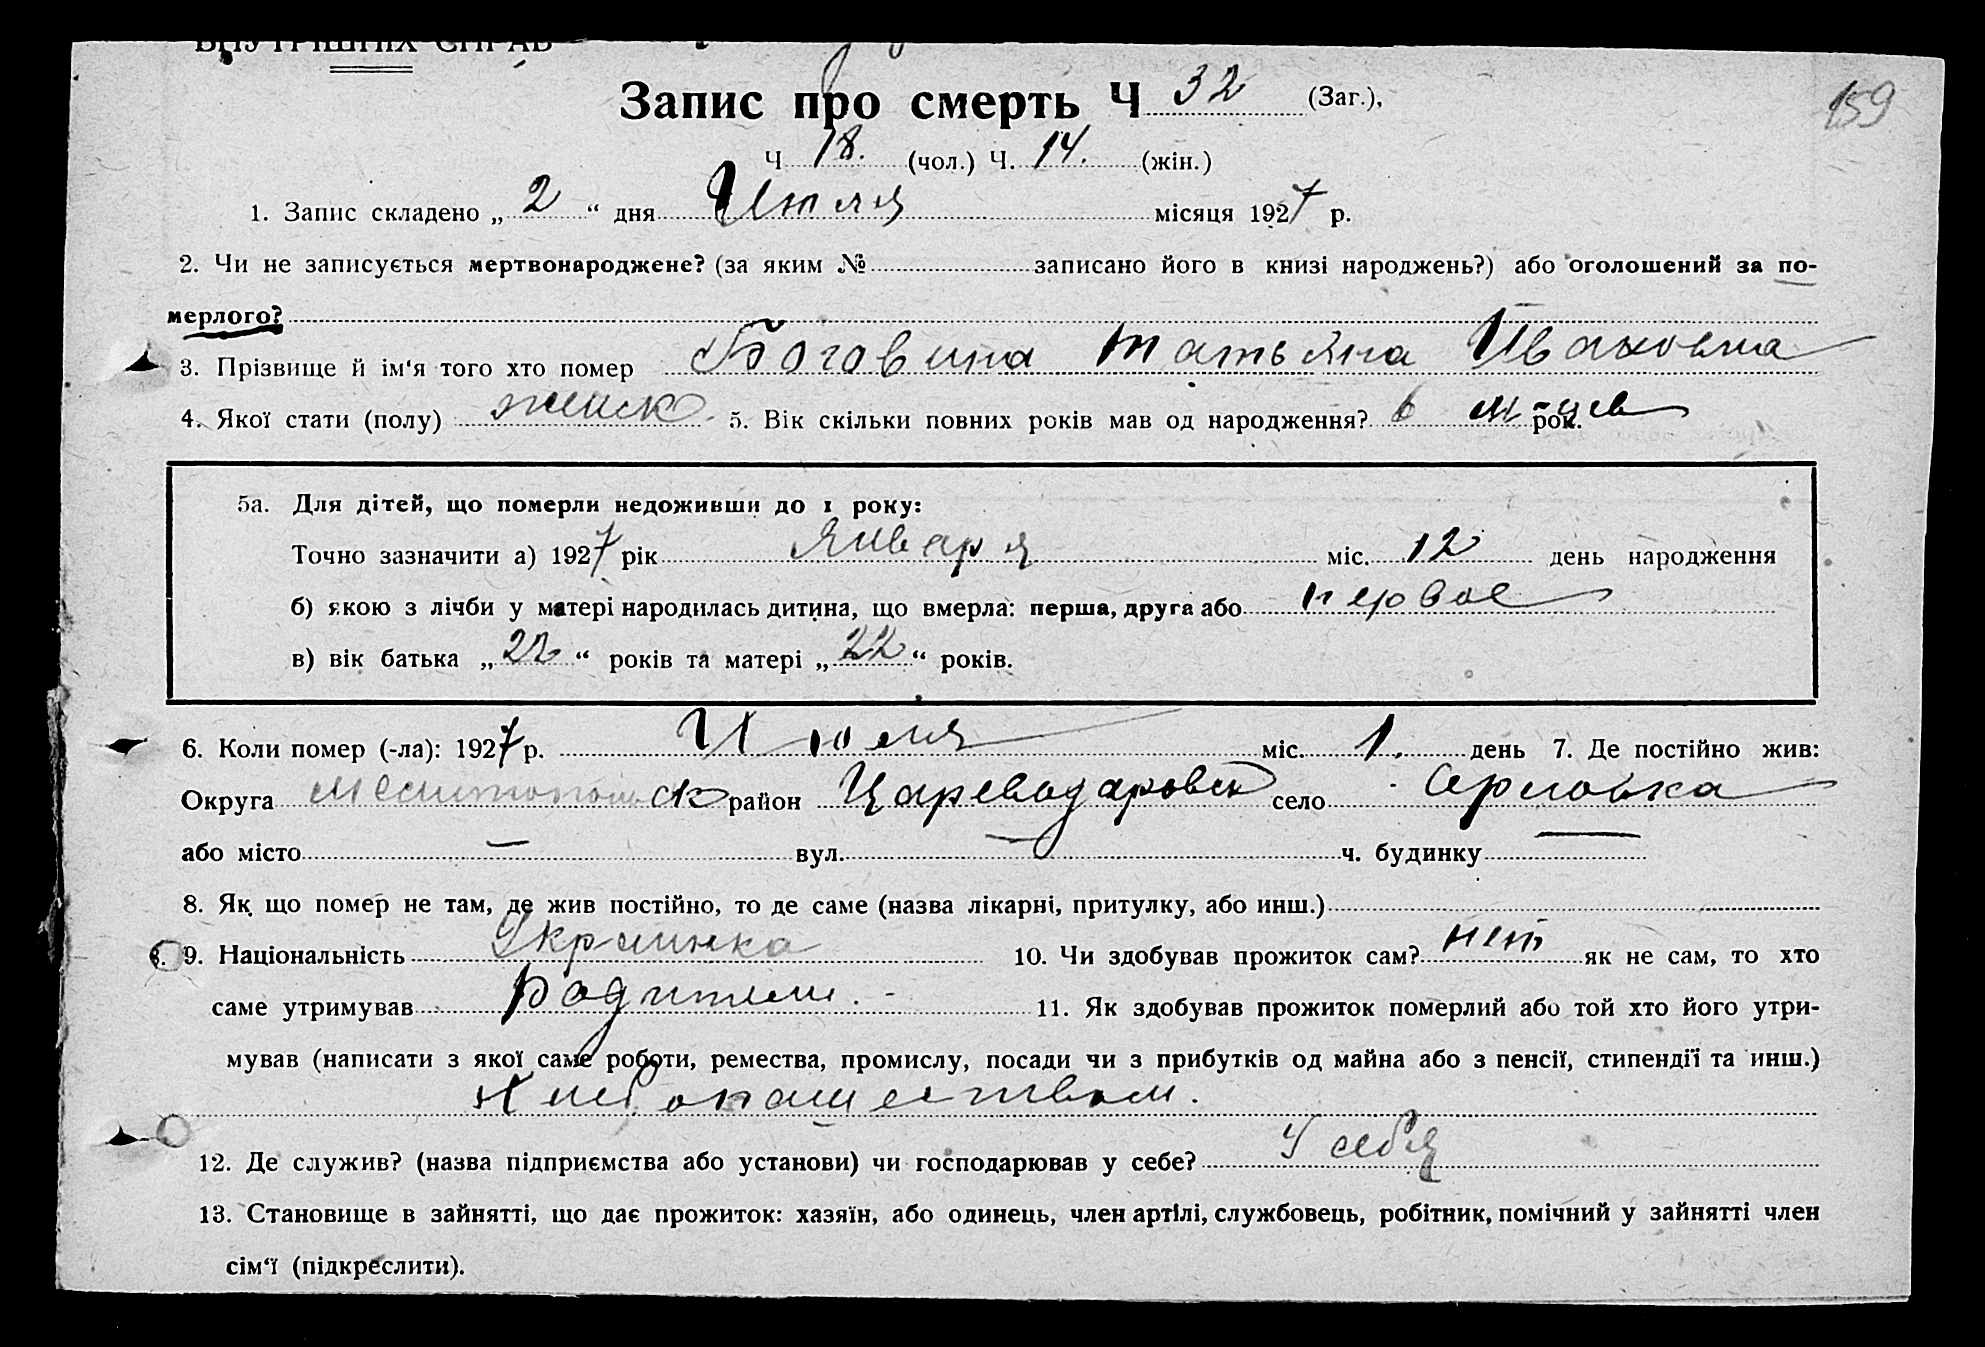 ВНУТРІШНІХ СПРАВ
Запис про смерть Ч 32 (Заг.),
159
Ч 18. (чол.) Ч. 14. (жін.)
1. Запис складено „ 2 “ дня Июля місяця 1927 р.
2. Чи не записується мертвонароджене? (за яким № записано його в книзі народжень?) або оголошений за по-
мерлого?
3. Прізвище й ім'я того хто помер Боговина Татьяна Ивановна
4. Якої стати (полу) женск 5. Вік скільки повних років мав од народження? 6 м-цев рок.
5а. Для дітей, що померли недоживши до 1 року:
Точно зазначити а) 1927 рік Января міс. 12 день народження
б) якою з лічби у матері народилась дитина, що вмерла: перша, друга або первое
в) вік батька „ 22 “ років та матері „ 22 “ років.
6. Коли помер (-ла): 1927 р. Июля міс. 1. день 7. Де постійно жив:
Округа Мелитопольск район Цареводаровск село
або місто — вул. — ч. будинку —
8. Як що помер не там, де жив постійно, то де саме (назва лікарні, притулку, або инш.)
9. Національність Украинка 10. Чи здобував прожиток сам? нет як не сам, то хто
саме утримував родители. 11. Як здобував прожиток померлий або той хто його утри-
мував (написати з якої саме роботи, ремества, промислу, посади чи з прибутків од майна або з пенсії, стипендії та инш.)
Хлебопашеством.
12. Де служив? (назва підприємства або установи) чи господарював у себе? У себя
13. Становище в зайнятті, що дає прожиток: хазяїн, або одинець, член артілі, службовець, робітник, помічний у зайнятті член
сім'ї (підкреслити).